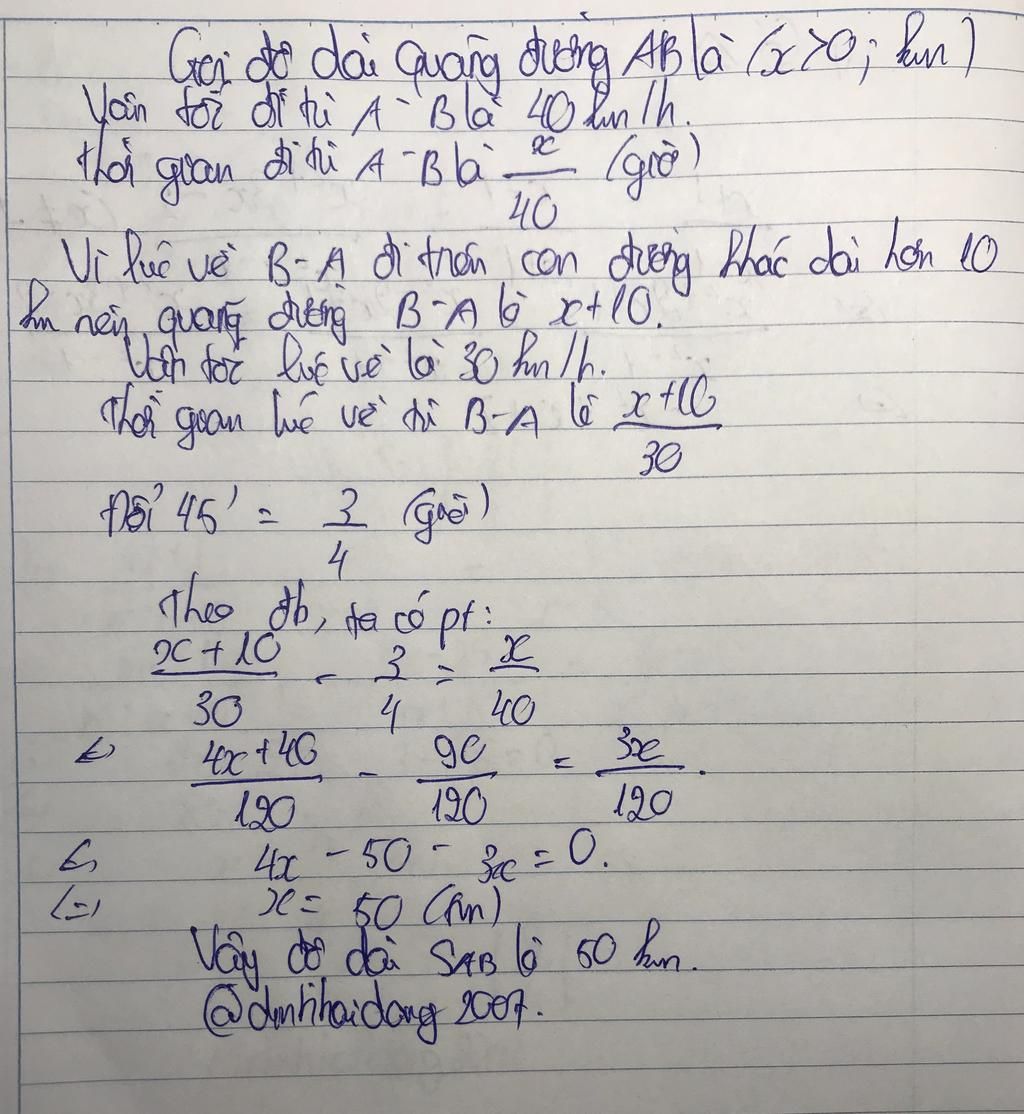 Gọi độ dài quãng đường AB là (x>0; km)
Vận tốc đi từ A-B là 40 km/h.
Thời gian đi từ A-B là x/40 (giờ)
Vì lúc về B-A đi trên con đường khác dài hơn 10
km nên quãng đường B-A là x+10.
Vận tốc lúc về là 30 km/h.
Thời gian lúc về từ B-A là (x+10)/30
Đổi 45' = 3/4 (giờ)
Theo đb, ta có pt:
(x+10)/30 - 3/4 = x/40
<=> (4x+40)/120 - 90/120 = 3x/120.
<=> 4x - 50 - 3x = 0.
<=> x = 50 (km)
Vậy độ dài SAB là 50 km.
@dinhhaidang2007.